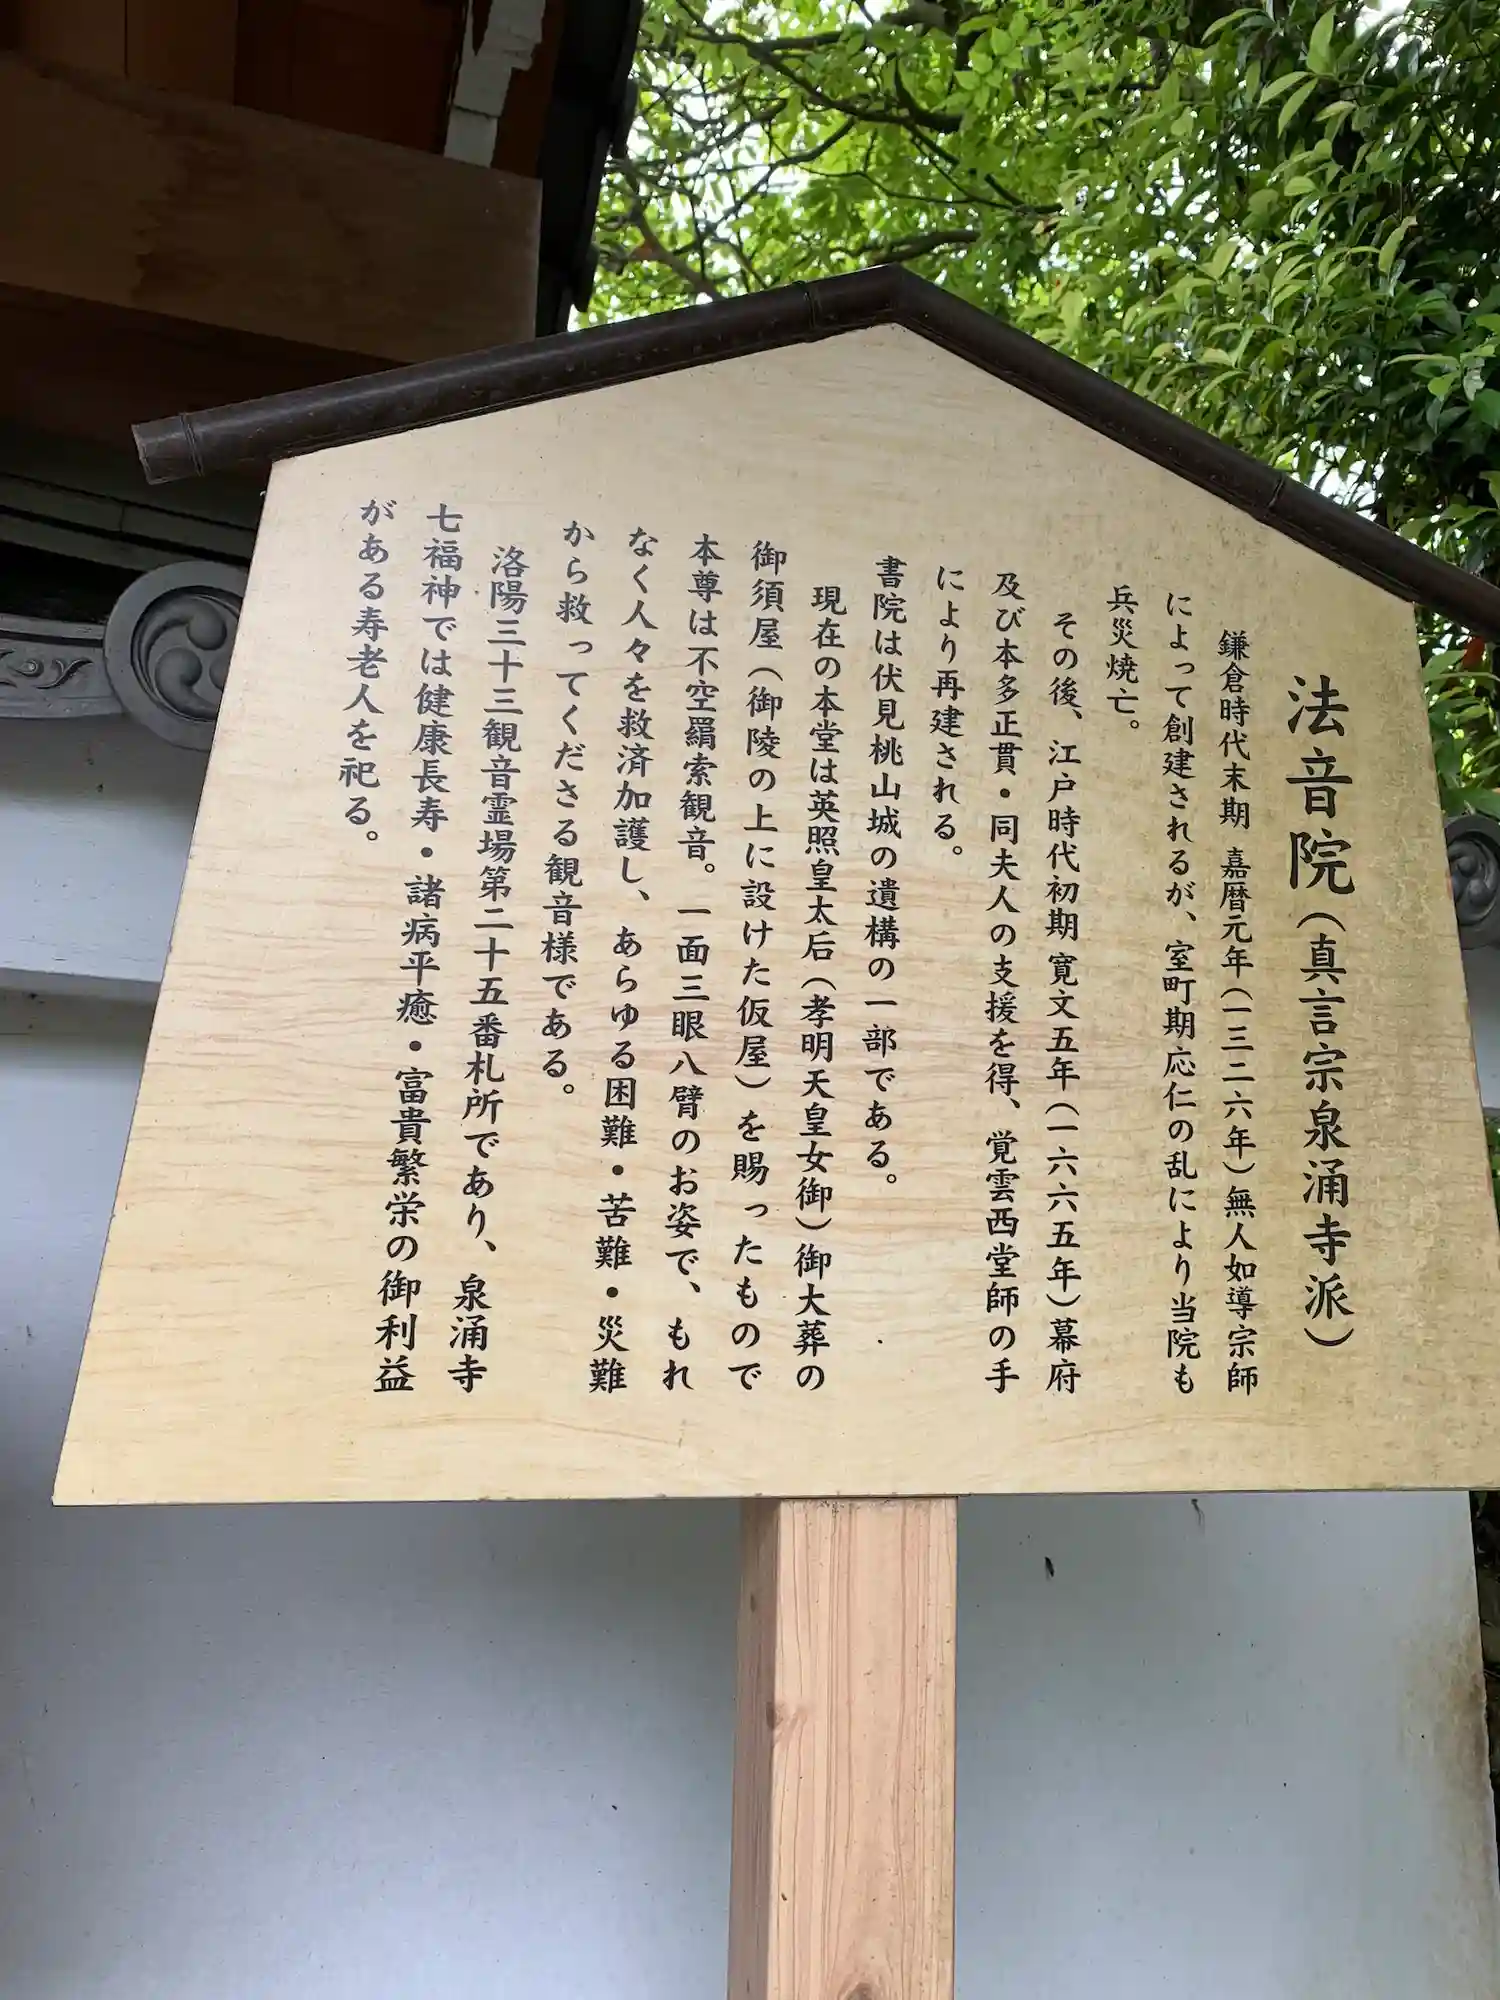 法音院（真言宗泉涌寺派）
鎌倉時代末期 嘉暦元年（一三二六年）無人如導宗師
によって創建されるが、室町期応仁の乱により当院も
兵災焼亡。
その後、江戸時代初期 寛文五年（一六六五年）幕府
及び本多正貫・同夫人の支援を得、覚雲西堂師の手
により再建される。
書院は伏見桃山城の遺構の一部である。
現在の本堂は英照皇太后（孝明天皇女御）御大葬の
御須屋（御陵の上に設けた仮屋）を賜ったもので
本尊は不空羂索観音。一面三眼八臂のお姿で、もれ
なく人々を救済加護し、あらゆる困難・苦難・災難
から救ってくださる観音様である。
洛陽三十三観音霊場第二十五番札所であり、泉涌寺
七福神では健康長寿・諸病平癒・富貴繁栄の御利益
がある寿老人を祀る。